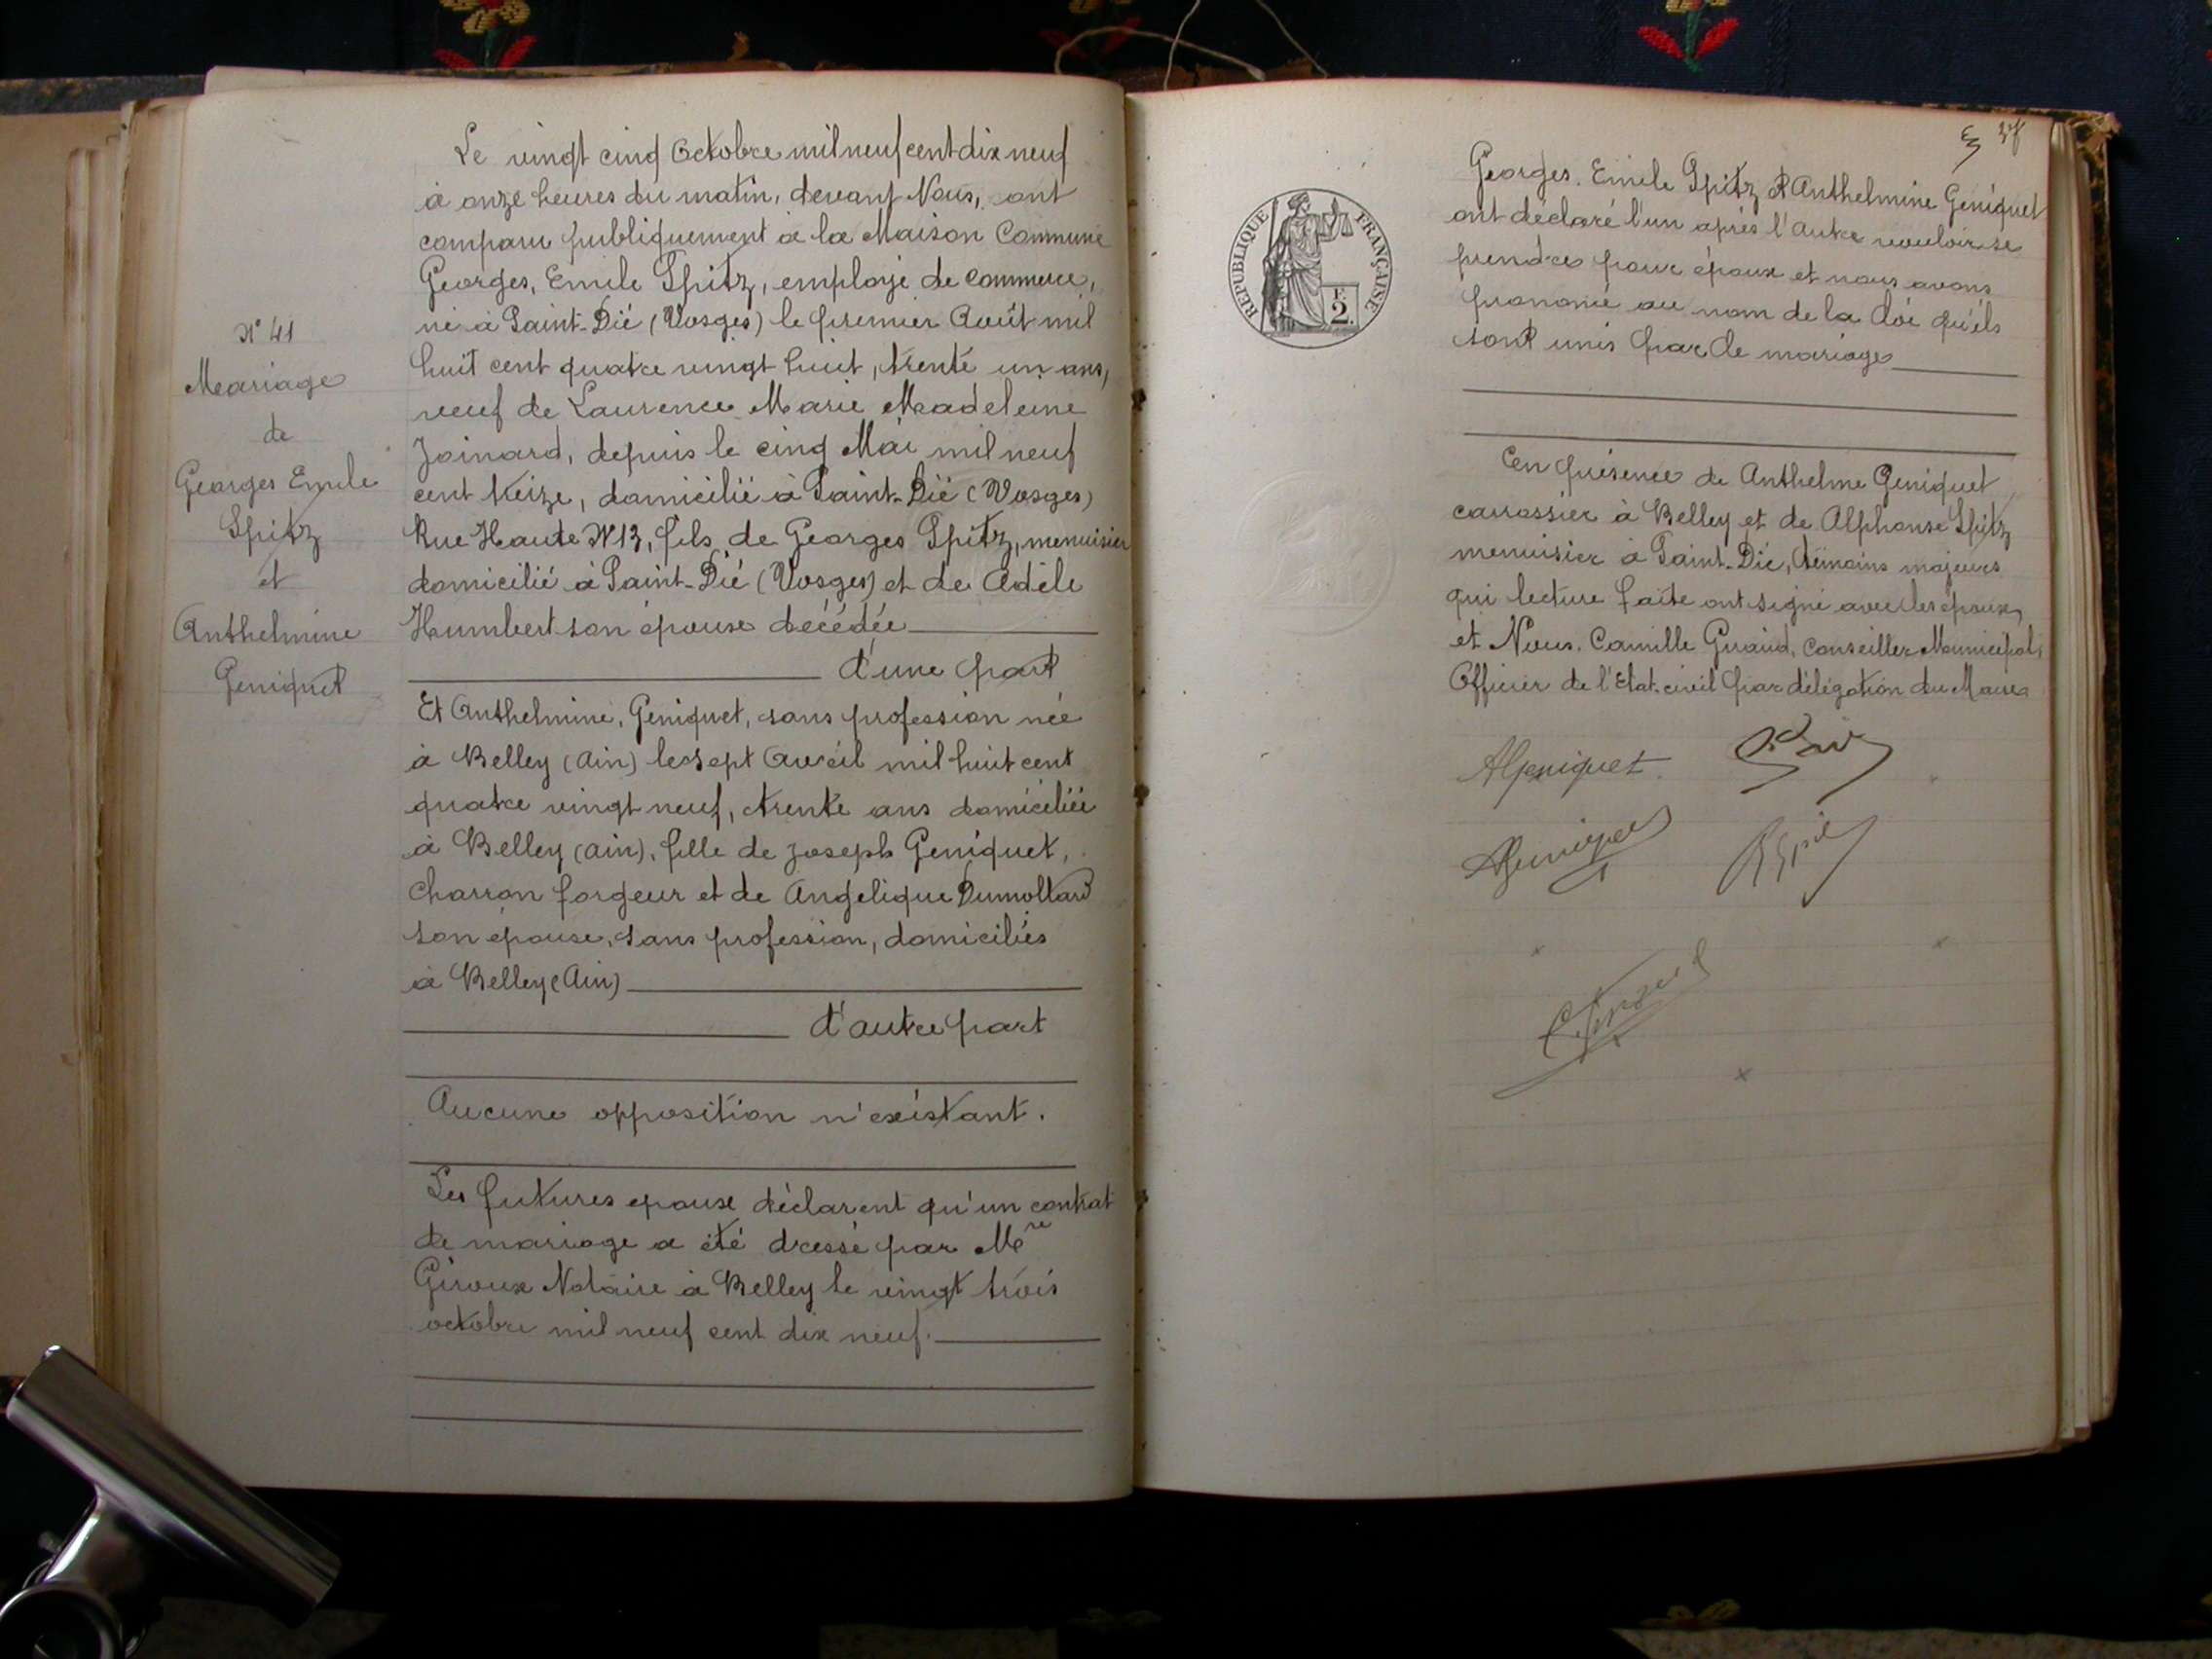 N° 41
Mariage
de
Georges Emile
Spitz
et
Anthelmine
Geniquet
Le vingt cinq Octobre mil neuf cent dix neuf
à onze heures du matin, devant Nous, ont
comparu publiquement à la Maison Commune
Georges, Emile Spitz, employé de commerce,
né à Saint-Dié (Vosges) le premier Août mil
huit cent quatre vingt huit, trente un ans,
veuf de Laurence Marie Madeleine
Joinard, depuis le cinq Mai mil neuf
cent treize, domicilié à Saint-Dié (Vosges)
Rue Haute N°13, fils de Georges Spitz, menuisier
domicilié à Saint-Dié (Vosges) et de Adèle
Humbert son épouse décédée
d'une part
Et Anthelmine, Geniquet, sans profession née
à Belley (Ain) le sept Avril mil huit cent
quatre vingt neuf, trente ans domiciliée
à Belley (Ain), fille de Joseph Geniquet,
Charron forgeur et de Angelique Dumollard
son épouse, sans profession, domiciliés
à Belley (Ain)
d'autre part
Aucune opposition n'existant.
Les futures epoux déclarent qu'un contrat
de mariage a été dressé par Me
Giroux Notaire à Belley le vingt trois
octobre mil neuf cent dix neuf.
37
RÉPUBLIQUE FRANÇAISE
F.
2.
Georges. Emile Spitz et Anthelmine Geniquet
ont déclaré l'un après l'autre vouloir se
prendre pour époux et nous avons
prononcé au nom de la loi qu'ils
sont unis par le mariage
En présence de Anthelme Geniquet
carrossier à Belley et de Alphonse Spitz
menuisier à Saint-Dié, témoins majeurs
qui lecture faite ont signé avec les époux
et Nous. Camille Giraud, Conseiller Municipal,
Officier de l'Etat-civil par délégation du Maire
A Geniquet